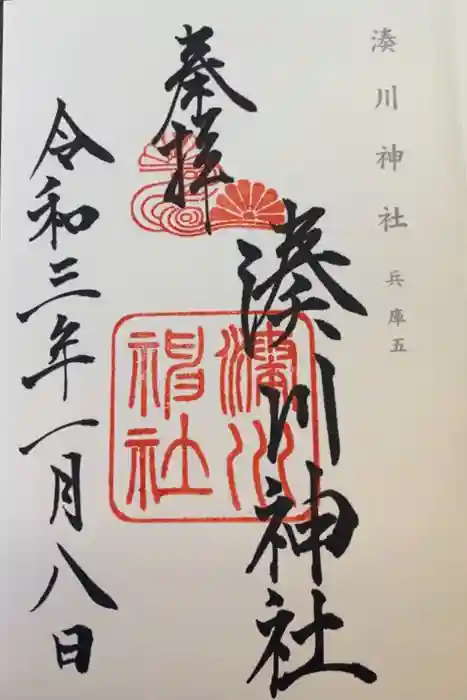 湊川神社 兵庫五
奉拝
湊川神社
湊川神社
令和三年一月八日